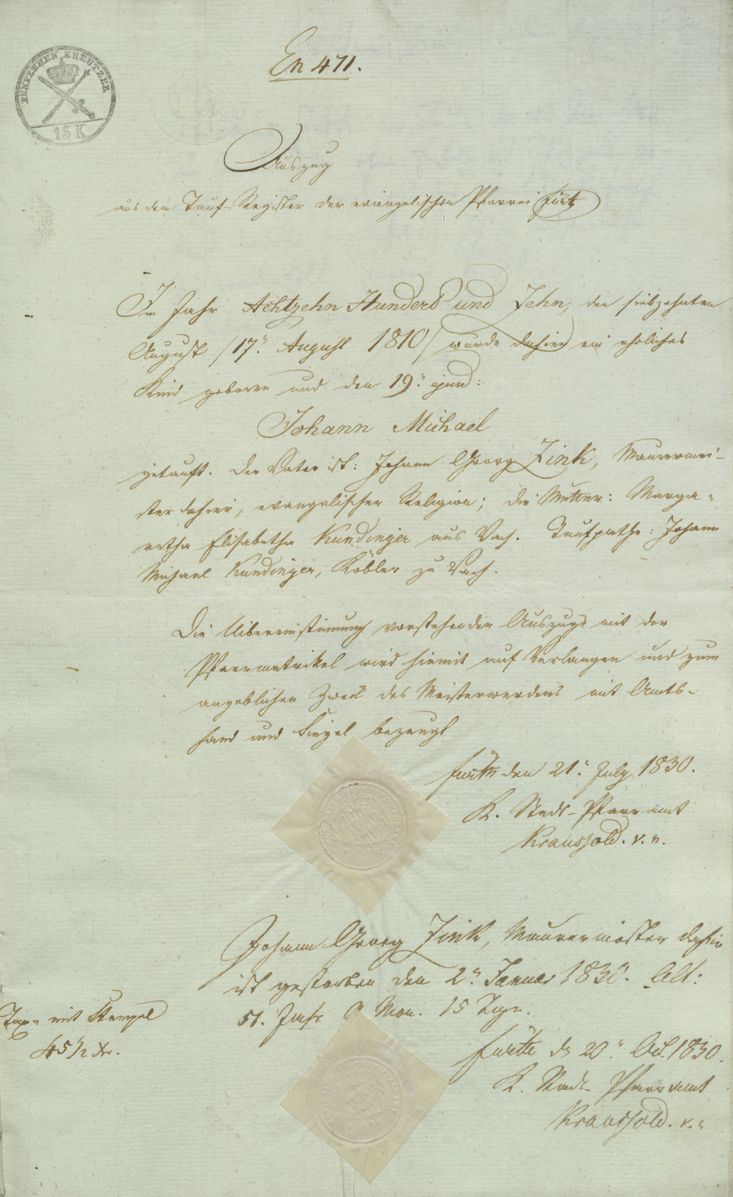 FÜNFZEHEN KREUTZER
15 K
En 471.
Auszug
aus dem Tauf-Register der evangelischen Pfarrei Fürth
Im Jahr Achtzehn Hundert und Zehn, den siebzehnten
August /17. August 1810/ wurde dahier ein eheliches
Kind geboren und den 19. ejusd:
Johann Michael
getauft. Der Vater ist: Johann Georg Zink, Maurermei-
ster dahier, evangelischer Religion; die Mutter: Marga-
retha Elisabetha Kundinger aus Vach. Taufpathe: Johann
Michael Kundinger, Köbler zu Vach.
Die Uibereinstimmung vorstehender Auszugs mit der
Pfarrmatrikel wird hiemit auf Verlangen und zum
angeblichen Zweck des Meisterwerdens mit Amts-
hand und Siegel bezeugt
Fürth den 21. July 1830.
K. Stadt-Pfarramt
Kraussold. v. n.
Johann Georg Zink, Maurermeister dahier
ist gestorben den 2. Januar 1830. Alt:
51. Jahr Mon. 15 Tage.
Taxe mit Stempel
45 1/2 Xr.
Fürth d. 20. 1830.
K. Stadt-Pfarramt
Kraussold. v. n.